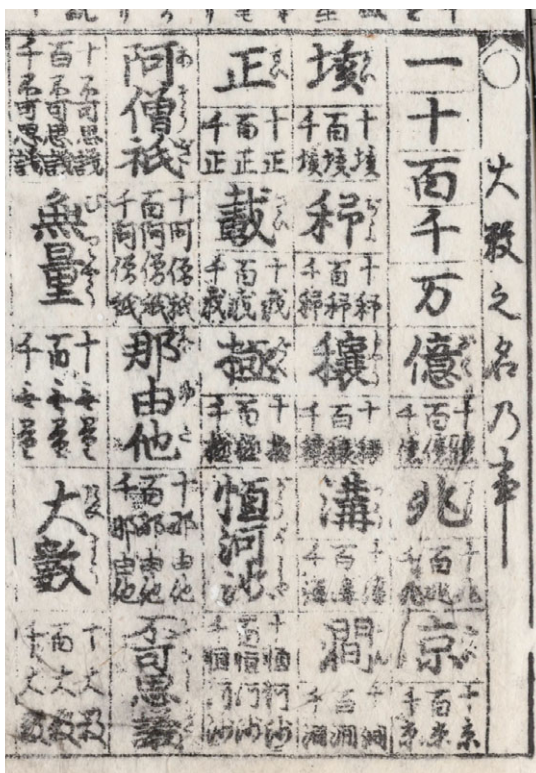 大数之名乃事
一
十
百
千
万
億
十億
百億
千億
兆
十兆
百兆
千兆
京
十京
百京
千京
垓
十垓
百垓
千垓
秭
十秭
百秭
千秭
穰
十穰
百穰
千穰
溝
十溝
百溝
千溝
澗
十澗
百澗
千澗
正
十正
百正
千正
載
十載
百載
千載
極
十極
百極
千極
恒河沙
十恒河沙
百恒河沙
千恒河沙
阿僧祇
十阿僧祇
百阿僧祇
千阿僧祇
那由他
十那由他
百那由他
千那由他
不可思議
十不可思議
百不可思議
千不可思議
無量
十無量
百無量
千無量
大數
十大数
百大数
千大数